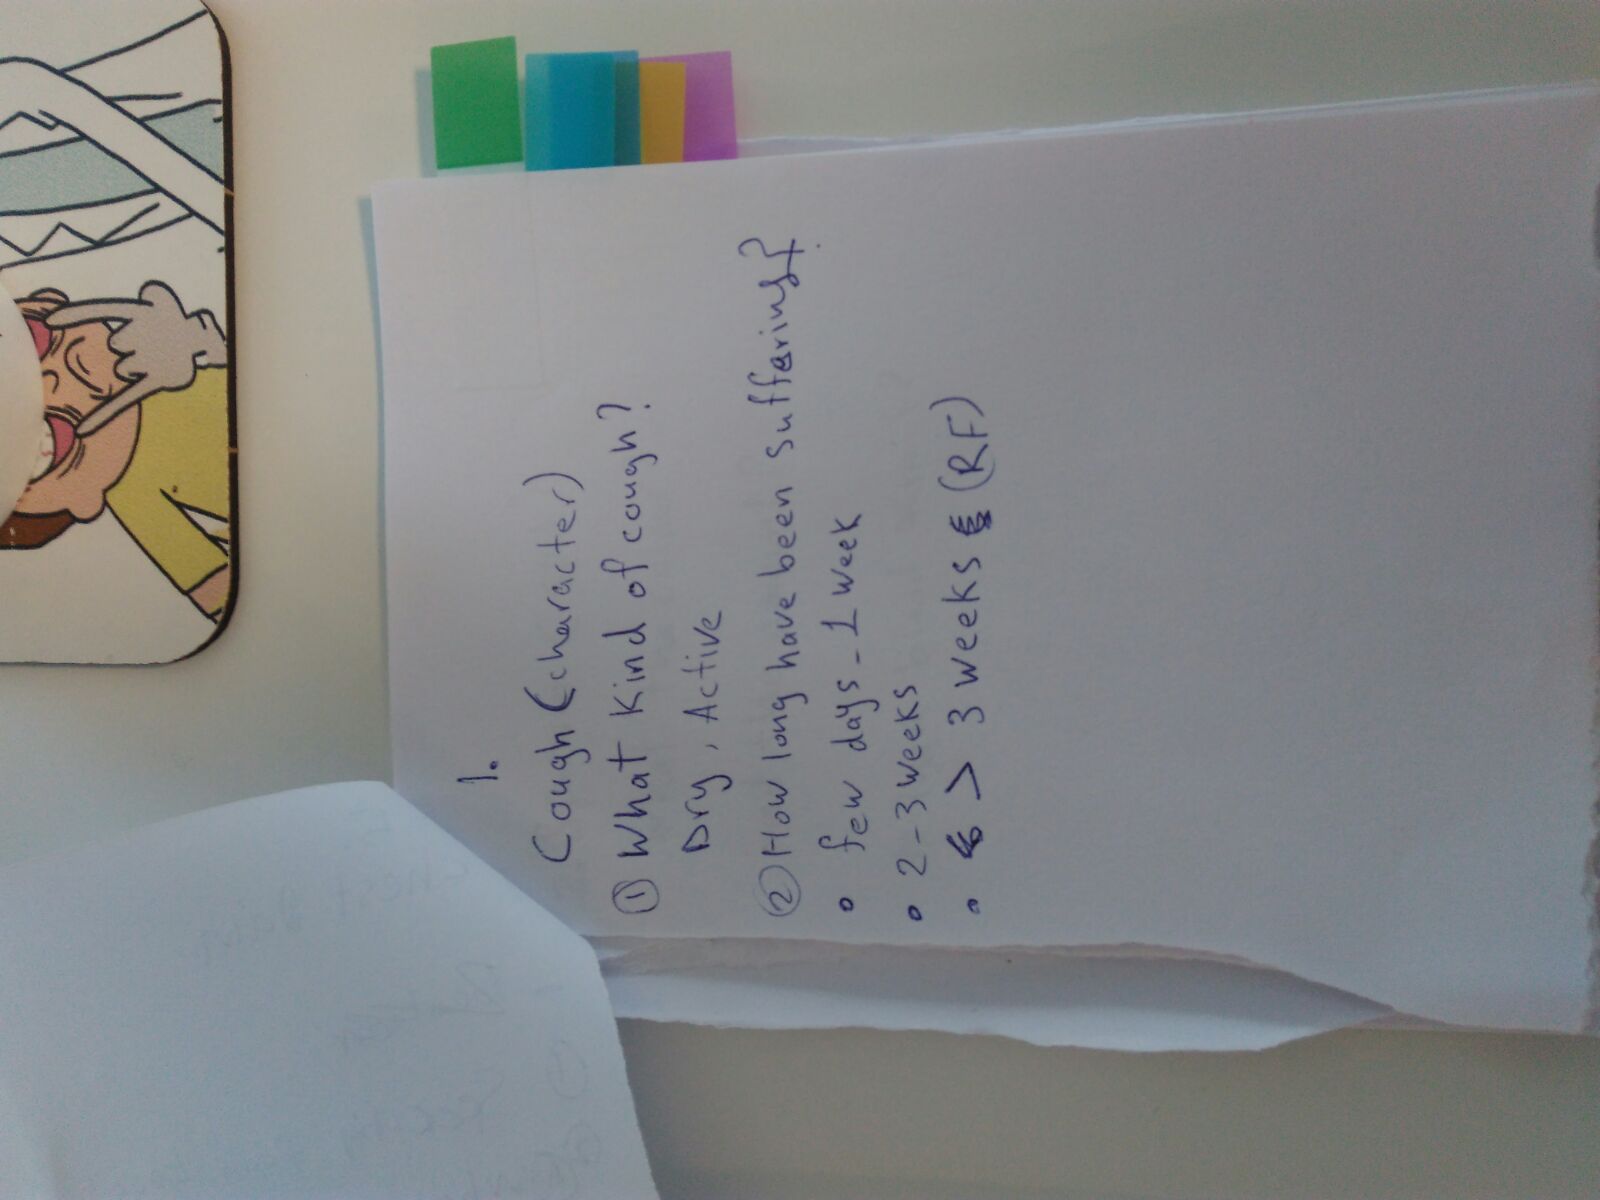 1.
Cough (character)
① What kind of cough?
Dry, Active
② How long have been suffering?
• few days - 1 week
• 2-3 weeks
• > 3 weeks (RF)